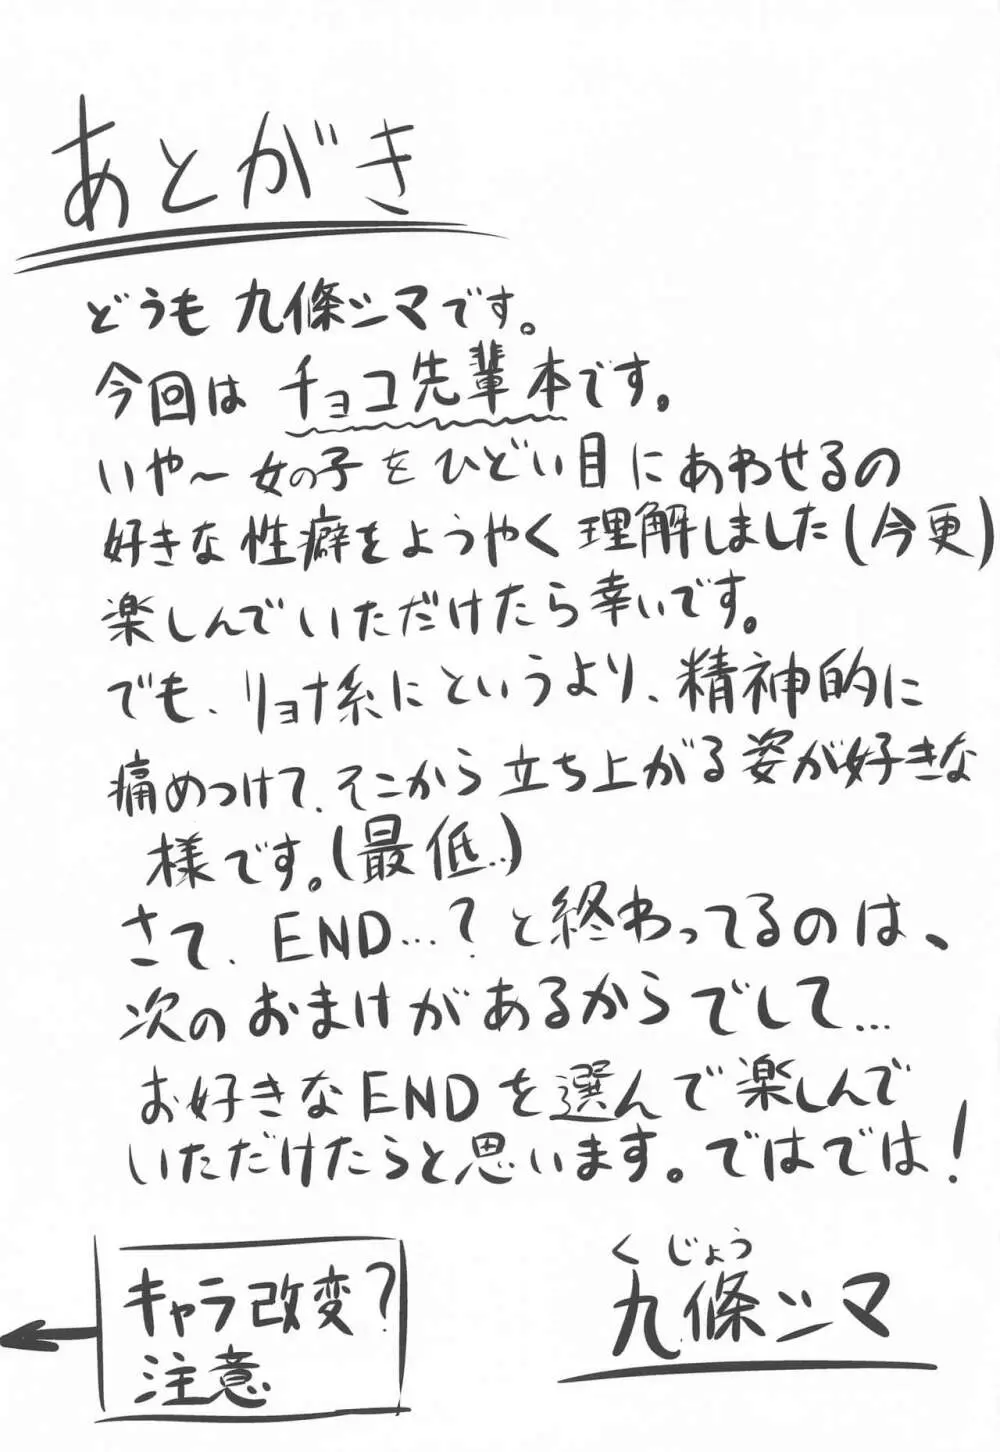 あとがき
どうも九條シマです。
今回はチョコ先輩本です。
いや～女の子をひどい目にあわせるの
好きな性癖をようやく理解しました(今更)
楽しんでいただけたら幸いです。
でも、リョナ系にというより、精神的に
痛めつけて、そこから立ち上がる姿が好きな
様です。(最低..)
さて、END…？と終わってるのは、
次のおまけがあるからでして…
お好きなENDを選んで楽しんで
いただけたらと思います。ではでは！
キャラ改変？
注意
くじょう
九條シマ